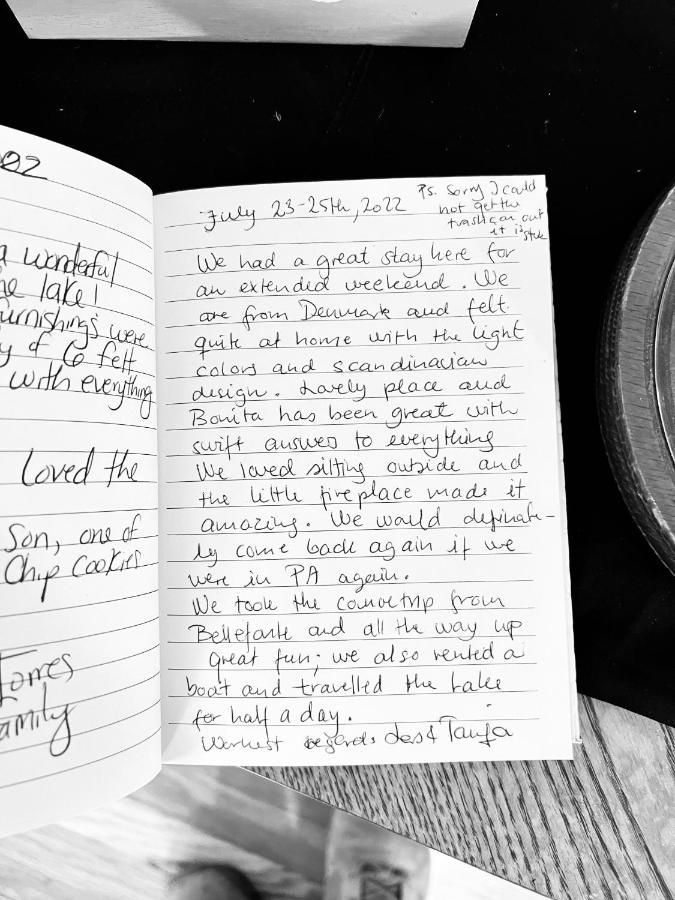 02
a wonderful
he lake!
urnishings were
y of 6 felt
with everything
Loved the
Son, one of
Chip Cookies
Torres
amily
July 23-25th, 2022
Ps. Sorry I could
not get the
trashcan out
it is stuk
We had a great stay here for
an extended weekend. We
are from Denmark and felt
quite at home with the light
colors and scandinavian
design. Lovely place and
Bonita has been great with
swift answer to everything
We loved sitting outside and
the little fireplace made it
amazing. We would definate-
ly come back again if we
were in PA again.
We took the canoetrip from
Bellefante and all the way up
great fun; we also rented a
boat and travelled the Lake
for half a day.
Warmest regards